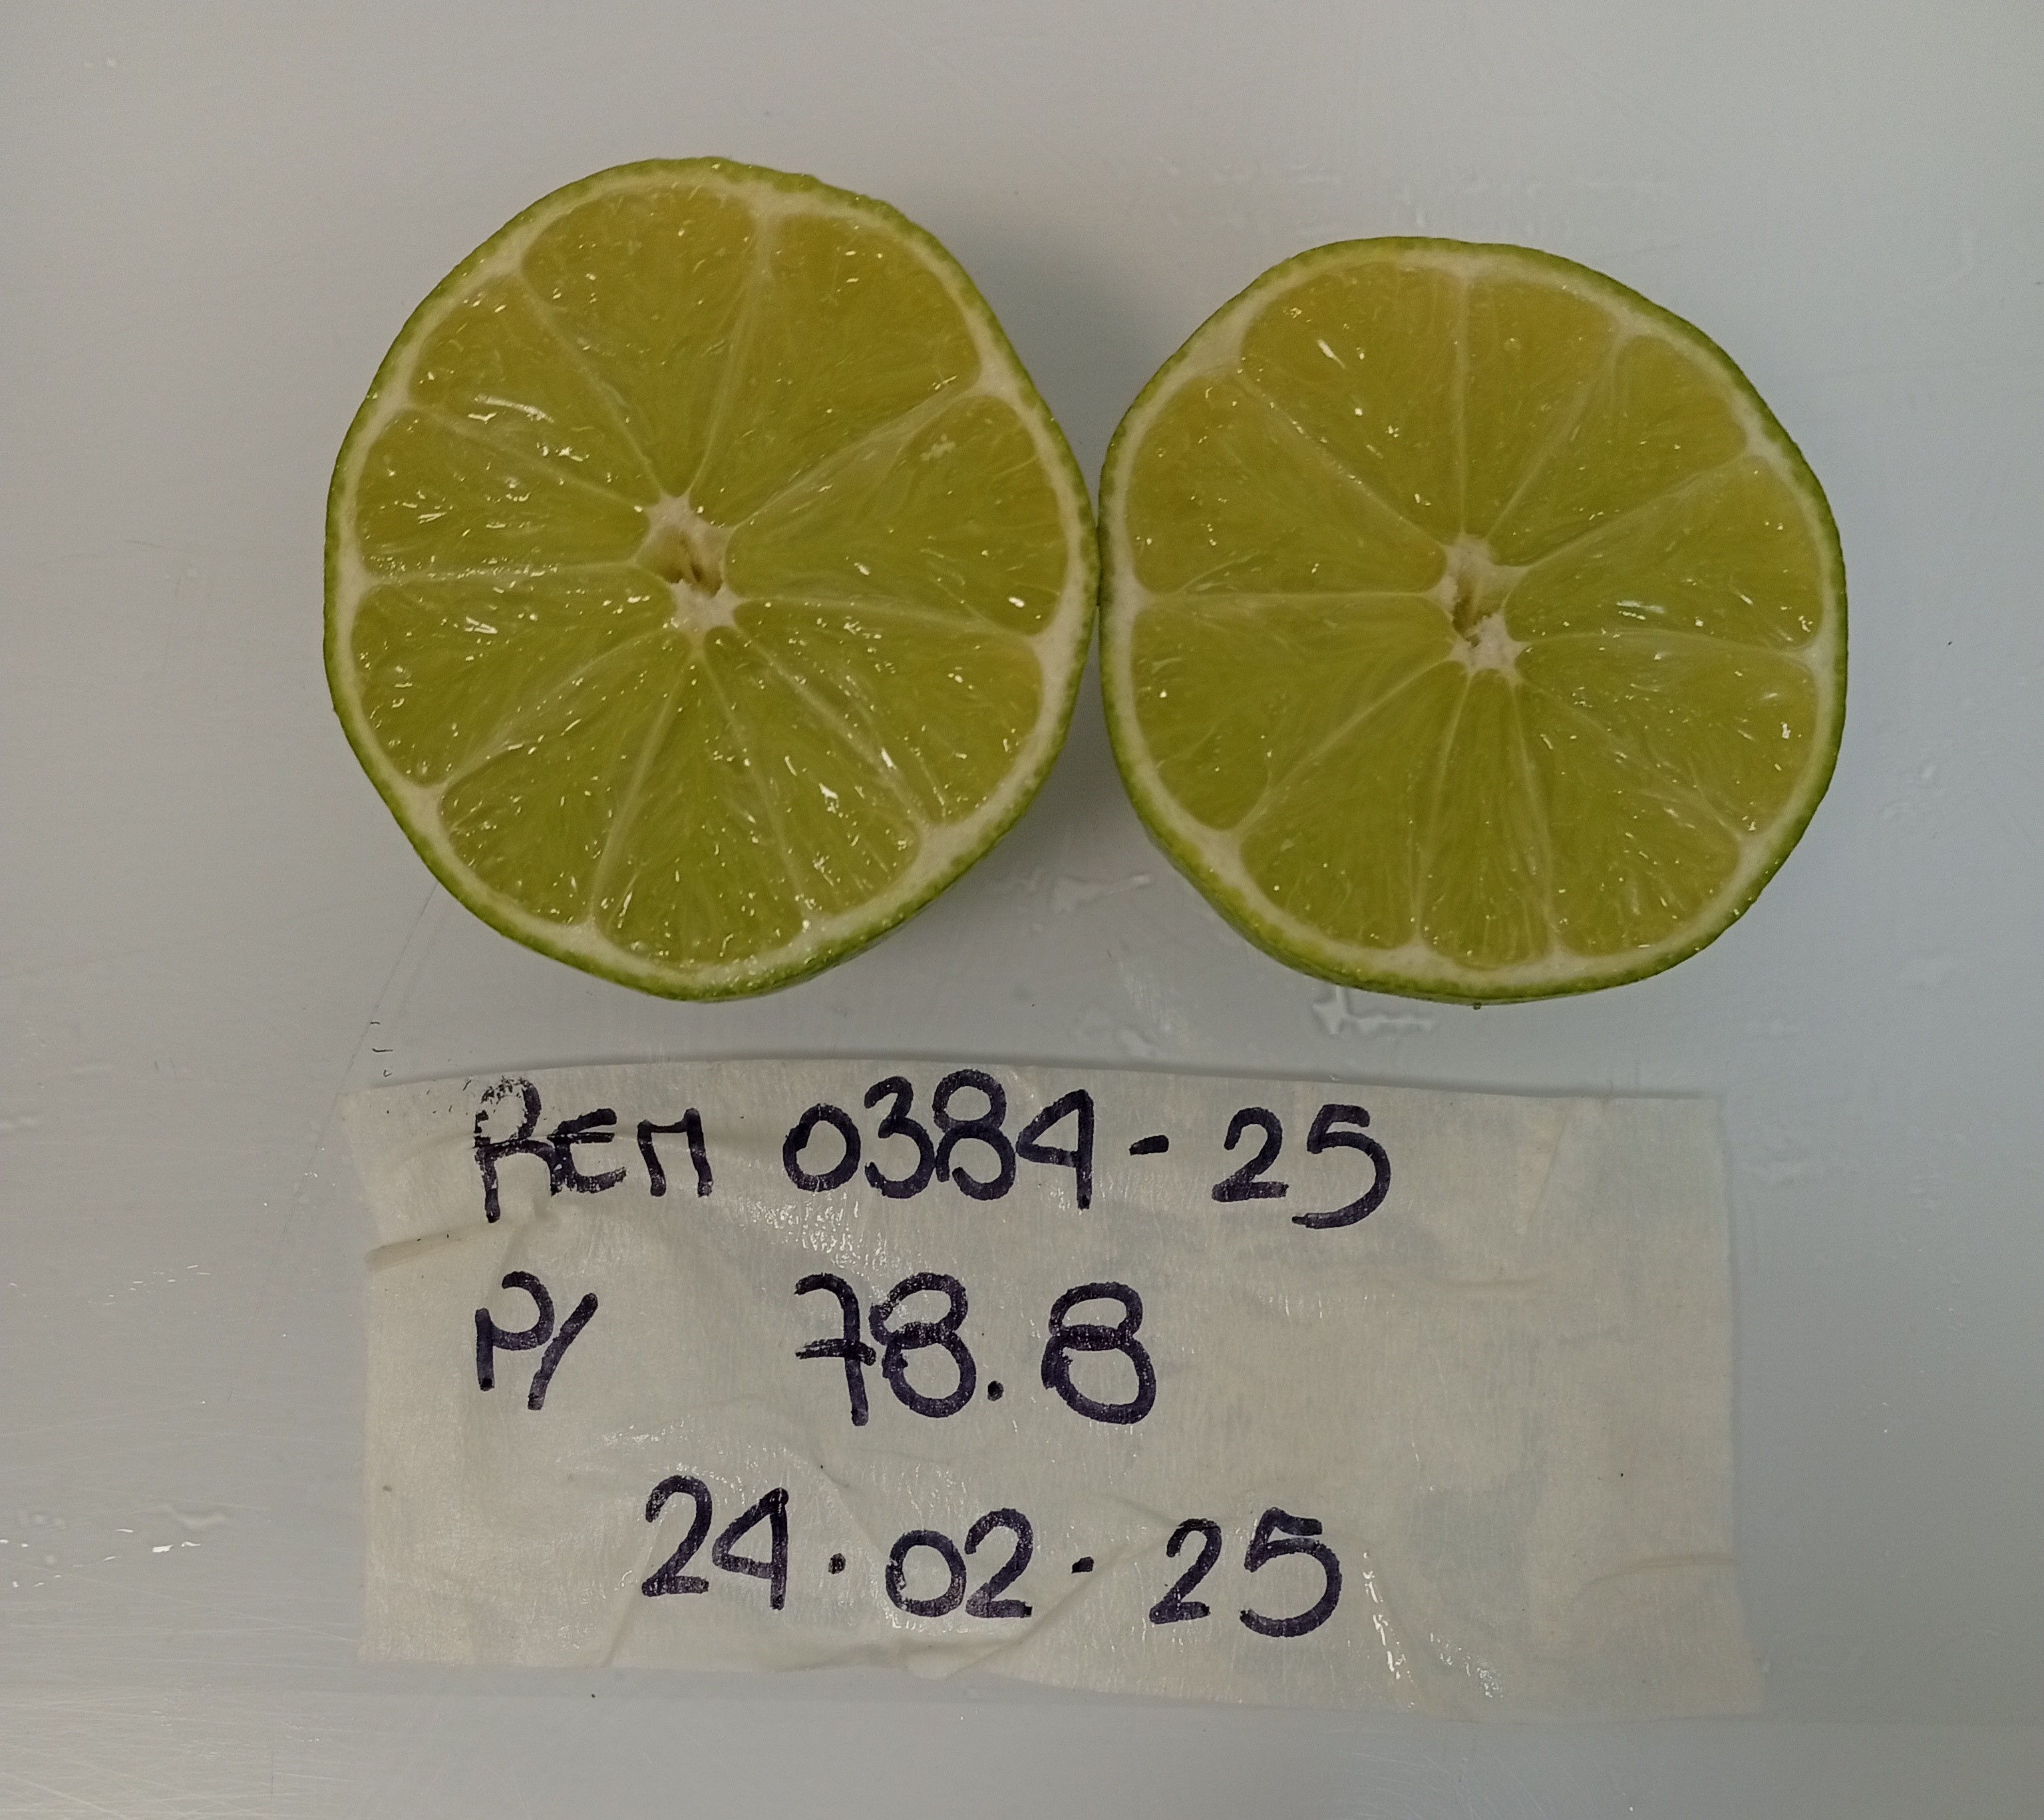 REM 0384-25
P/ 78.8
24.02-25